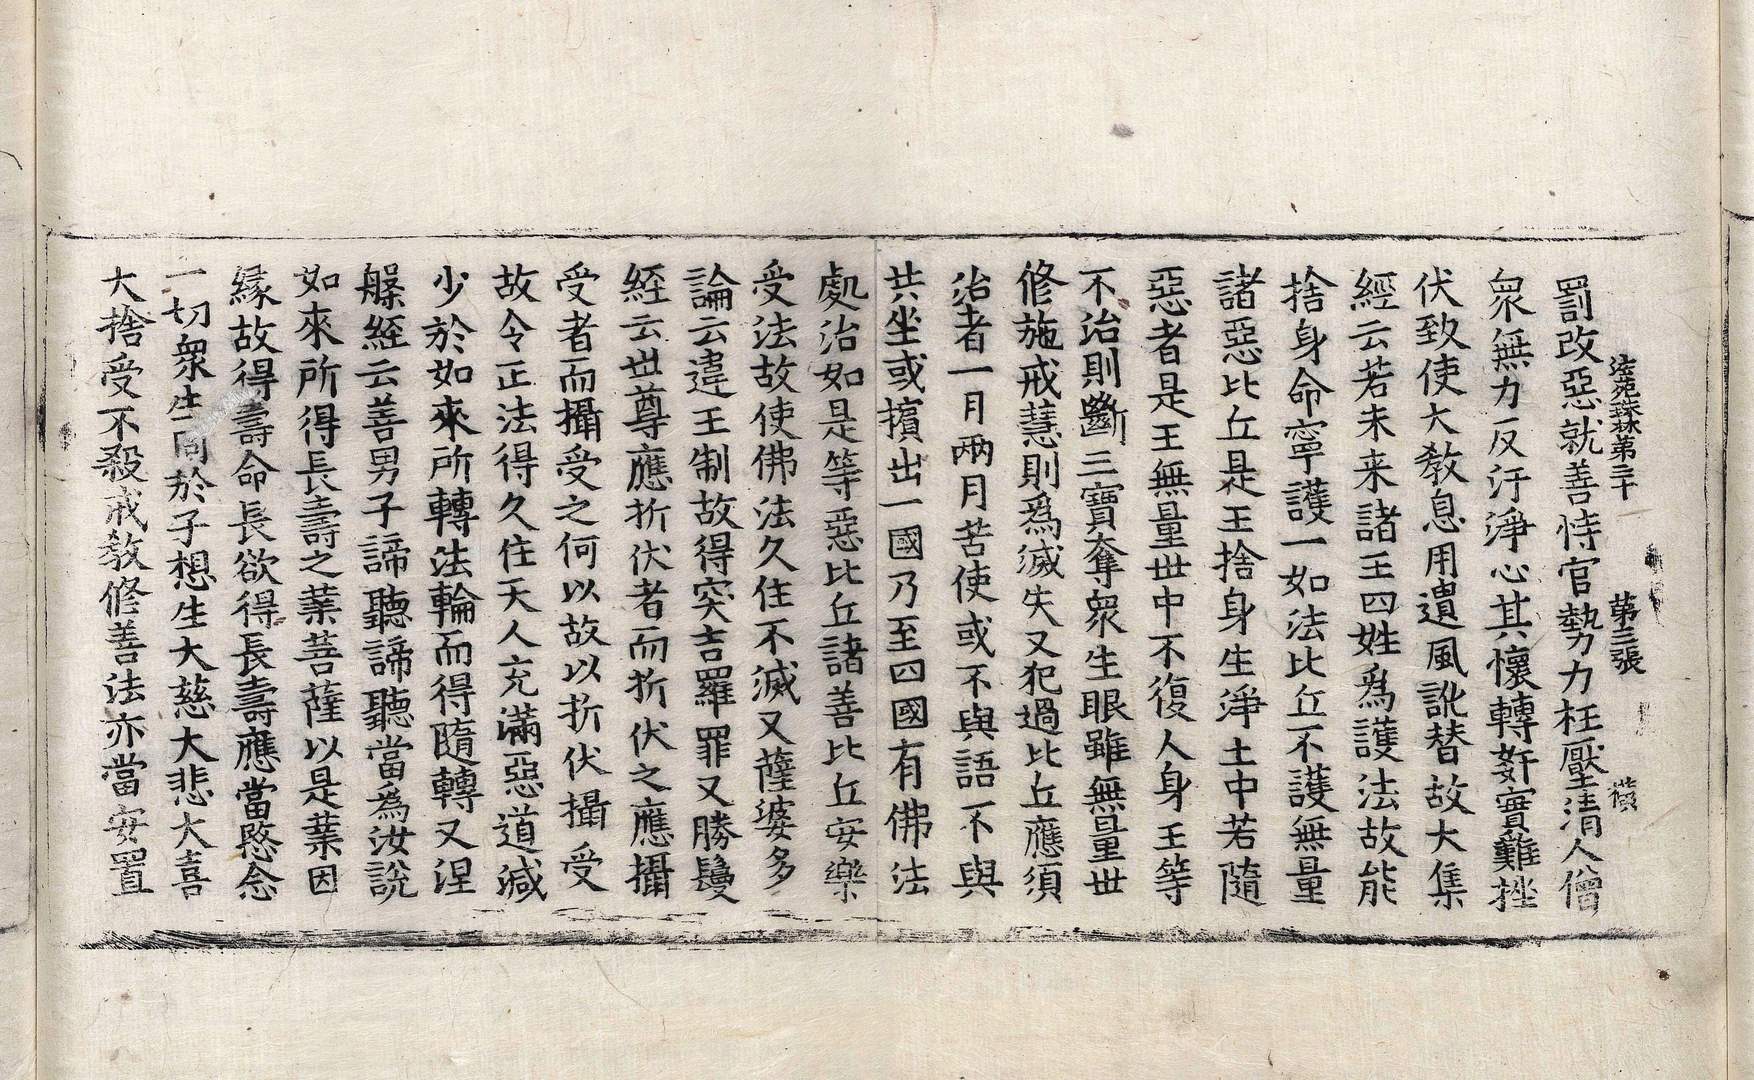 法苑珠林第三十 第三張 横
罰改惡就善恃官勢力枉壓清人僧
衆無力反汙淨心其懷轉姧實難挫
伏致使大教息用遺風訛替故大集
經云若未来諸王四姓爲護法故能
捨身命寧護一如法比丘不護無量
諸惡比丘是王捨身生淨土中若隨
惡者是王無量世中不復人身王等
不治則斷三寶奪衆生眼雖無量世
修施戒慧則爲滅失又犯過比丘應須
治者一月兩月苦使或不與語不與
共坐或擯出一國乃至四國有佛法
處治如是等惡比丘諸善比丘安樂
受法故使佛法久住不滅又薩婆多
論云違王制故得突吉羅罪又勝鬘
經云世尊應折伏者而折伏之應攝
受者而攝受之何以故以折伏攝受
故令正法得久住天人充滿惡道減
少於如來所轉法輪而得隨轉又涅
槃經云善男子諦聽諦聽當為汝說
如來所得長壽之業菩薩以是業因
縁故得壽命長欲得長壽應當愍念
一切衆生同於子想生大慈大悲大喜
大捨受不殺戒教修善法亦當安置